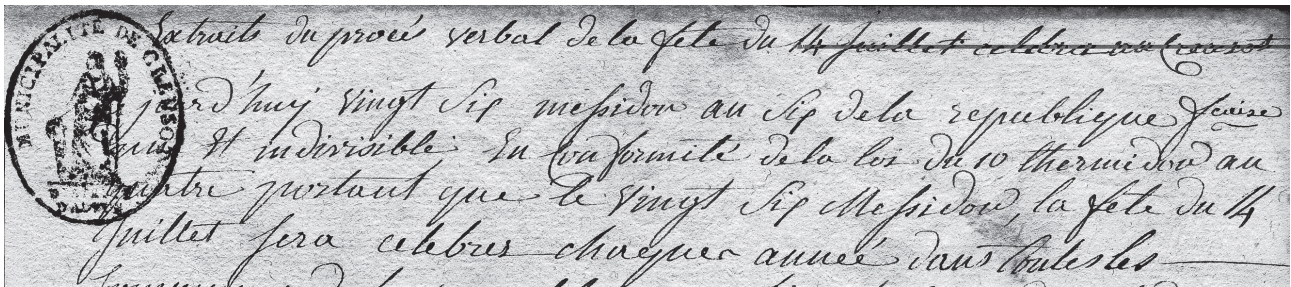 MUNICIPALITÉ DE CREUSOT
Extraits du procés verbal de la fête du 14 Juillet celebrer au Creusot
jourd'huy vingt Six messidor an Six de la republique fcaise
une Et indivisible En Conformité de la loi du 10 thermidor an
quatre portant que le Vingt Six Messidor, la fête du 14
Juillet sera celebres chaques année dans toutes les